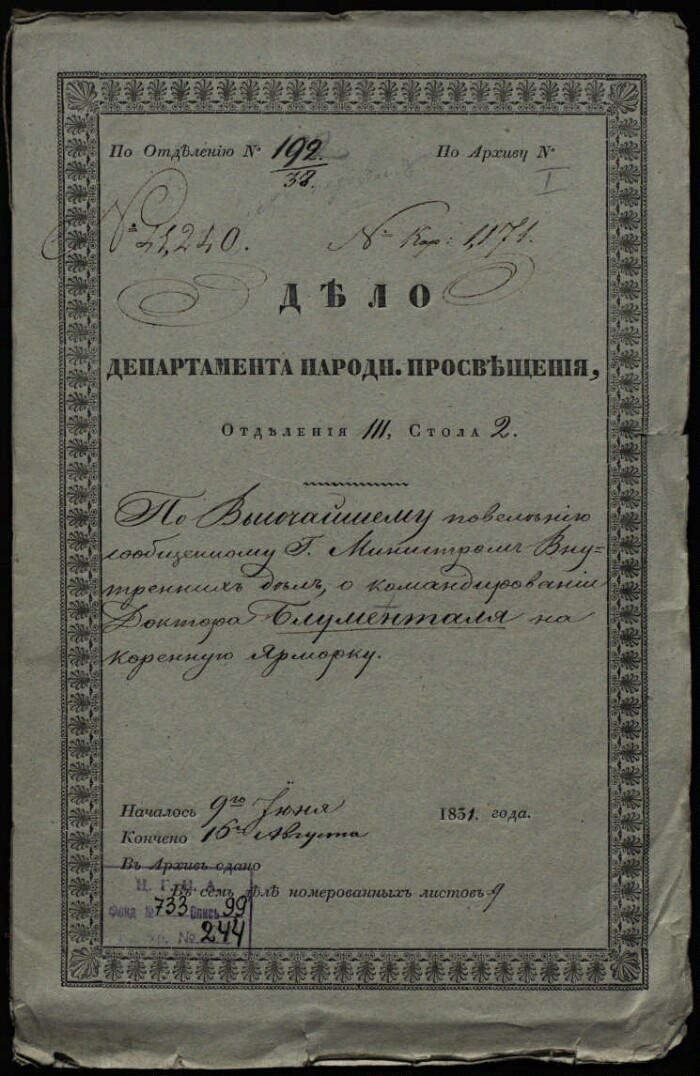 По Отдѣленію № 192./38. По Архиву №
I
№ 41,240. № Кор: 1,171.
ДѢЛО
ДЕПАРТАМЕНТА НАРОДН. ПРОСВѢЩЕНІЯ,
Отдѣленія III, Стола 2.
По Высочайшему повелѣнію
сообщенному Г. Министромъ Вну-
треннихъ дѣлъ, о командированіи
Доктора Блументаля на
коренную Ярморку.
Началось 9го Іюня 1831. года.
Кончено 16го Августа
Въ Архивъ сдано
Въ семъ дѣлѣ номерованныхъ листовъ 9
Ц. Г. И. А.
Фонд № 733 Опись 99
№ 244